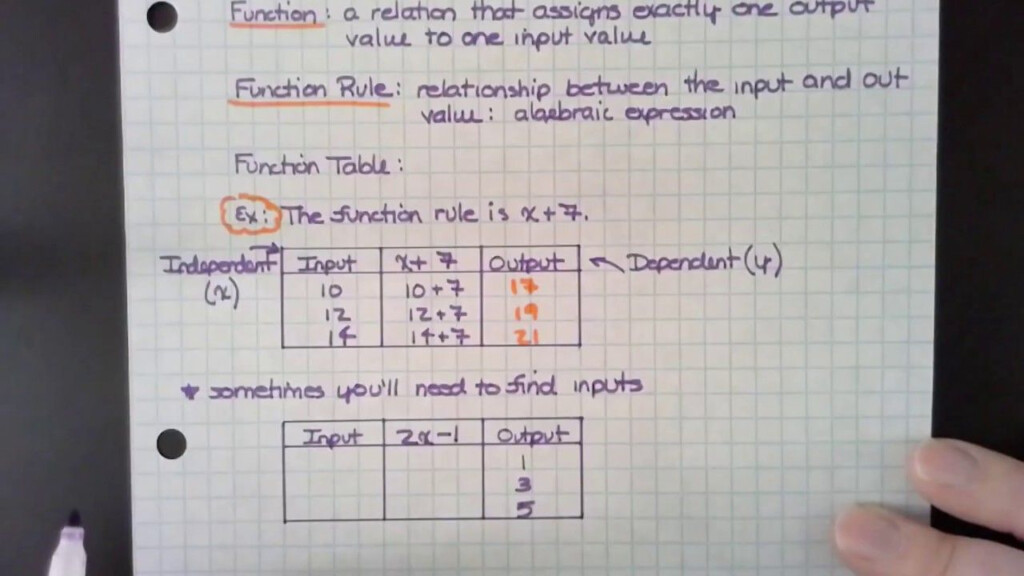 Function: a relation that assigns exactly one output
value to one input value
Function Rule: relationship between the input and out
value: algebraic expression
Function Table:
Ex: The function rule is x+7.
Independent (x) → Input x+7 Output ← Dependent (y)
10 10+7 17
12 12+7 19
14 14+7 21
* sometimes you'll need to find inputs
Input 2x-1 Output
1
3
5